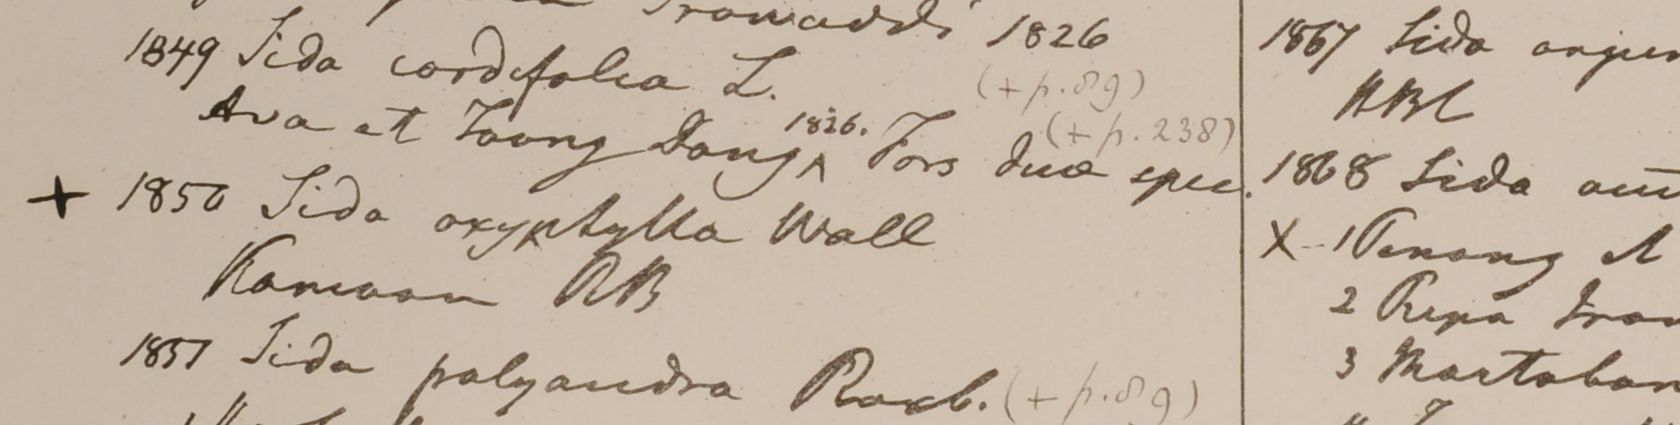 Irowaddi 1826
1849 Sida cordifolia L. (+ p. 89)
Ava et Toong Dong 1826. Fors duae spec. (+ p. 238)
+ 1850 Sida oxyphylla Wall
Kamaon RB
1851 Sida polyandra Roxb. (+ p. 89)
1867 Sida
HBC
1868 Sida
X - 1 Penang
2 Ripa
3 Martaban